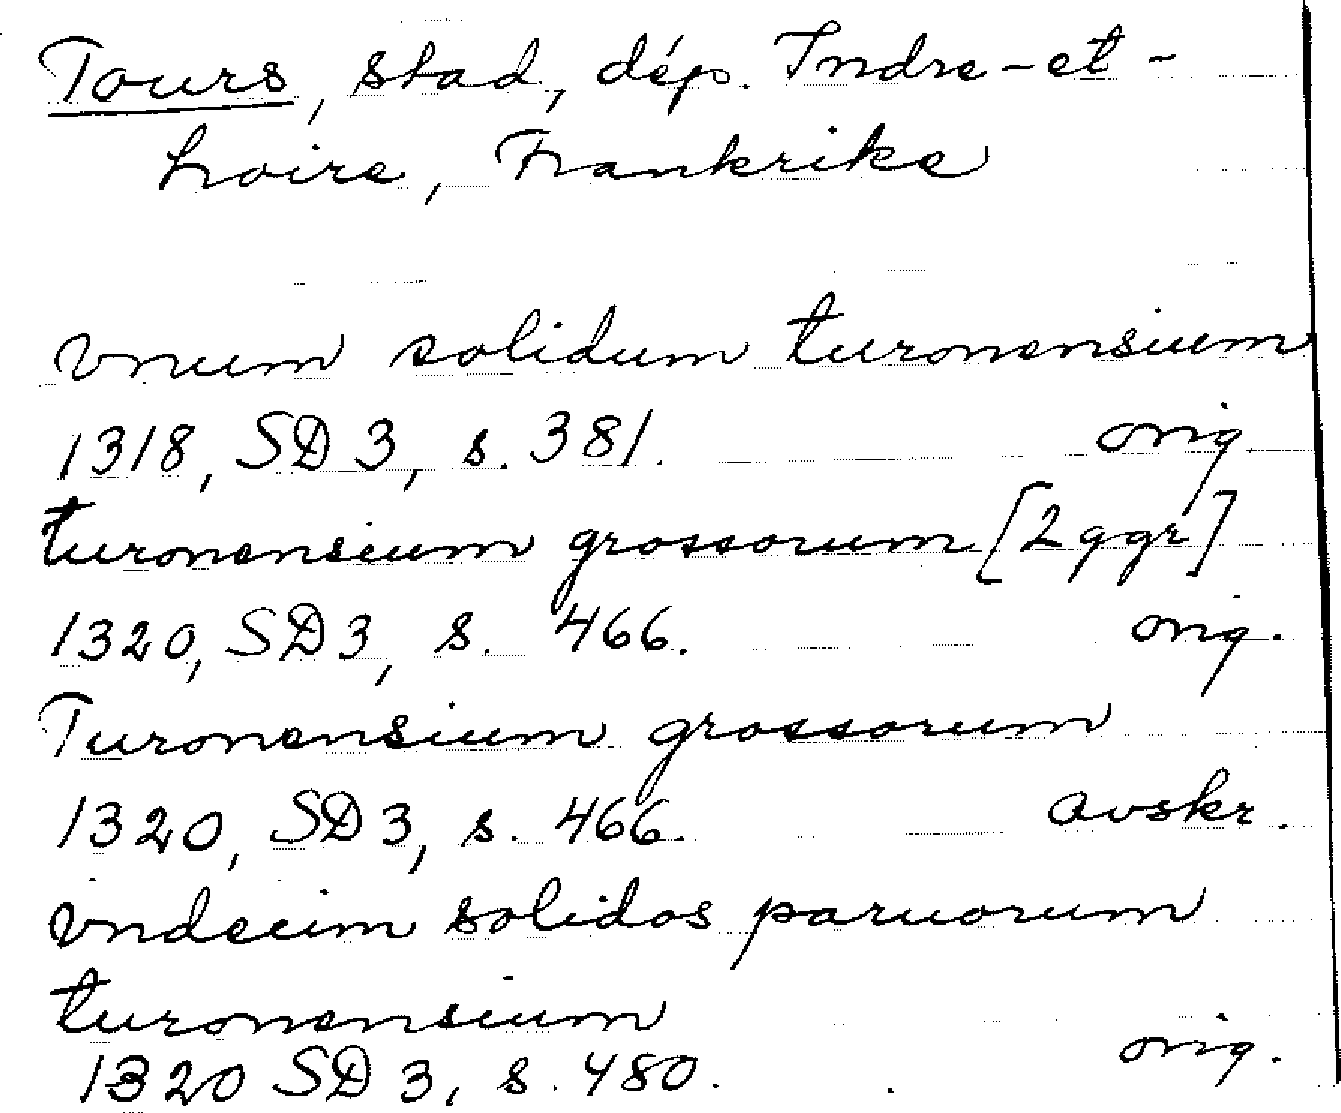 Tours, stad, dép. Indre-et-
Loire, Frankrike
vnum solidum turonensium
1318, SD 3, s. 381. orig
turonensium grossorum [2 ggr]
1320, SD 3, s. 466. orig.
Turonensium grossorum
1320, SD 3, s. 466. avskr.
vndecim solidos paruorum
turonensium
1320 SD 3, s. 480. orig.